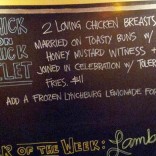 ICK
ON
ICK
LET
2 LOVING CHICKEN BREASTS
MARRIED ON TOASTY BUNS W/
HONEY MUSTARD WITNESS +
JOINED IN CELEBRATION W/ TOLER
FRIES.
ADD A FROZEN LYNCHBURG LEMONADE FOR
R OF THE WEEK: Lamb